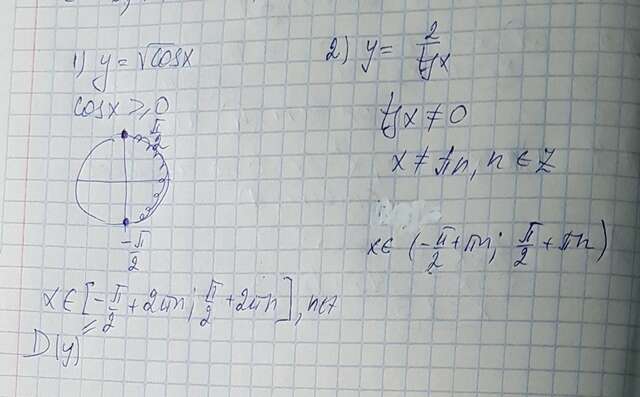 1) y = √cosx
cosx ≥ 0
π/2
-π/2
x ∈ [-π/2 + 2πn; π/2 + 2πn], n∈z
D(y)
2) y = 2/tgx
tgx ≠ 0
x ≠ πn, n ∈ Z
x ∈ (-π/2 + πn; π/2 + πn)